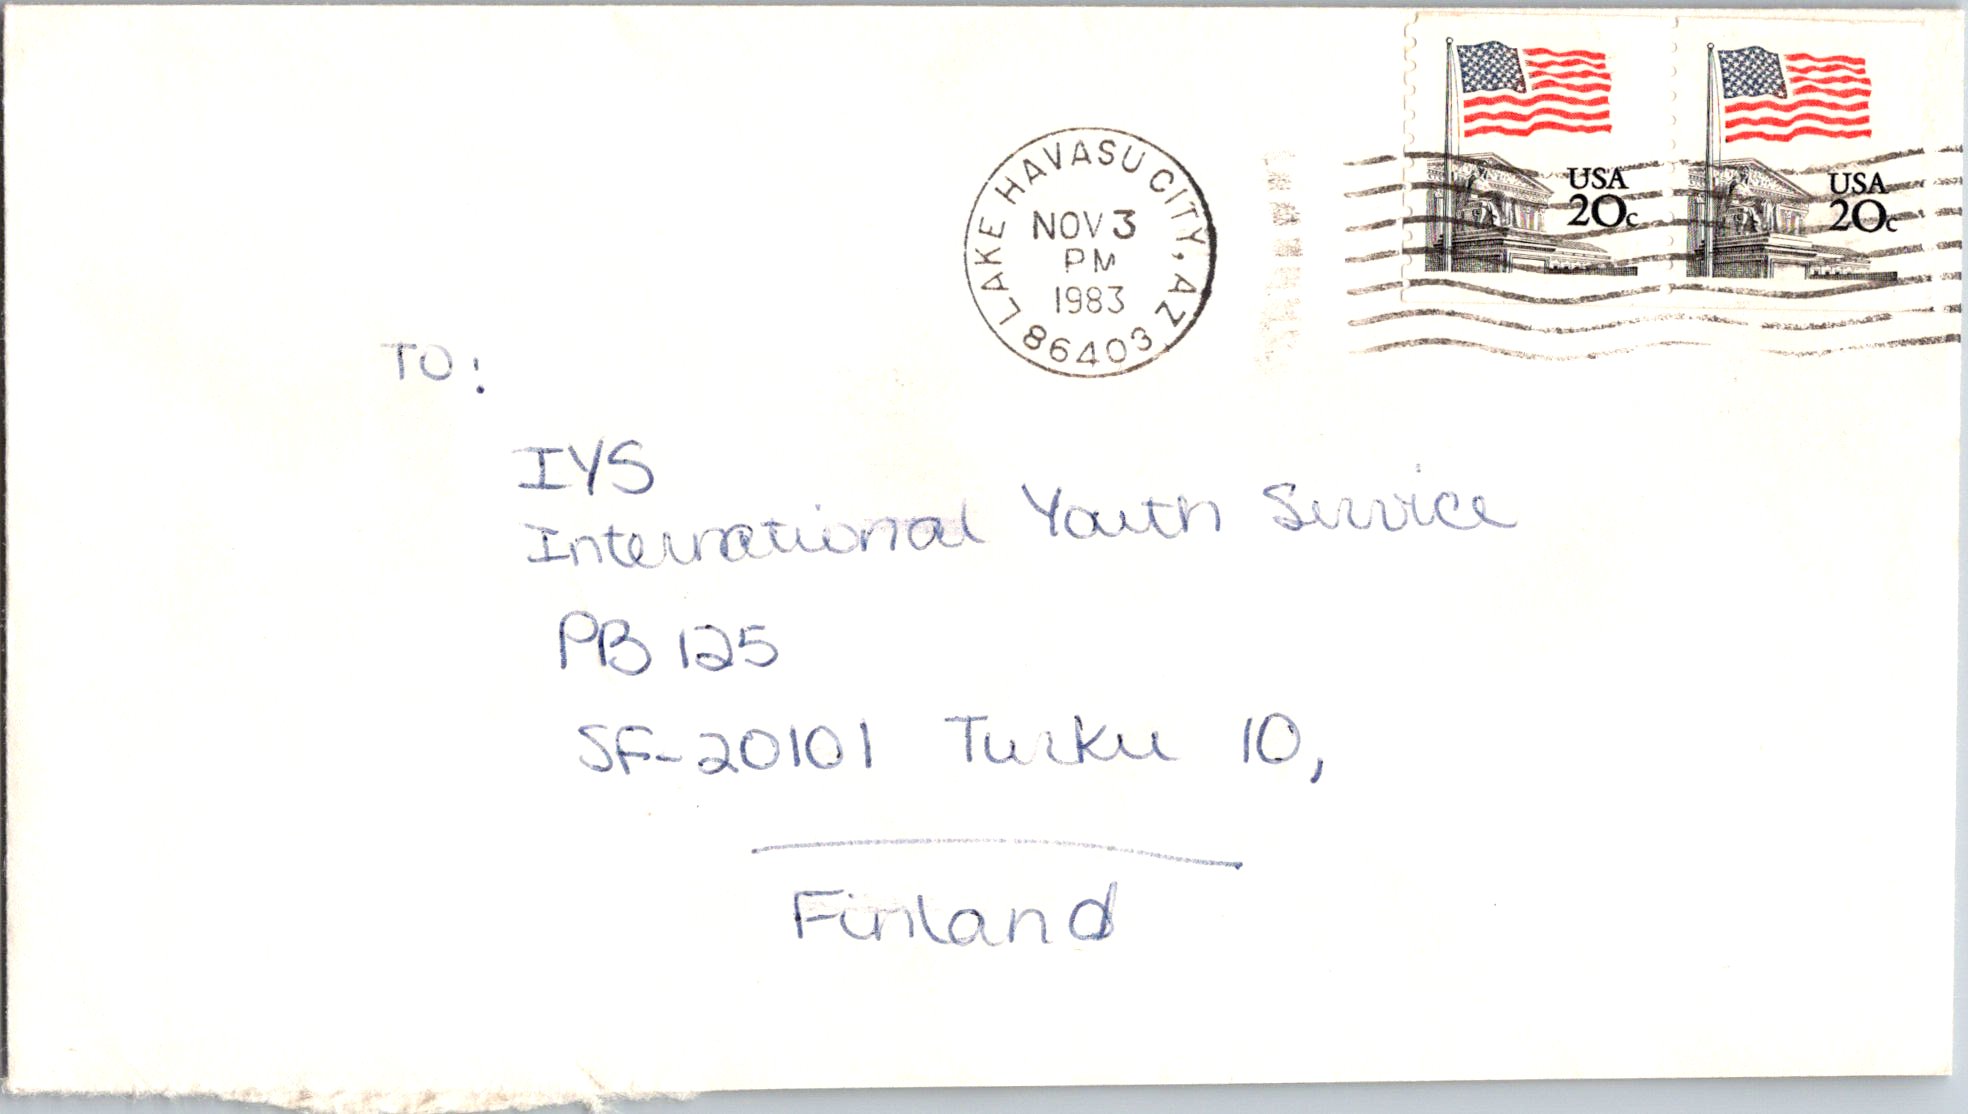 LAKE HAVASU CITY, AZ
NOV 3
PM
1983
86403
USA
20c
USA
20c
TO:
IYS
International Youth Service
PB 125
SF-20101 Turku 10,
Finland